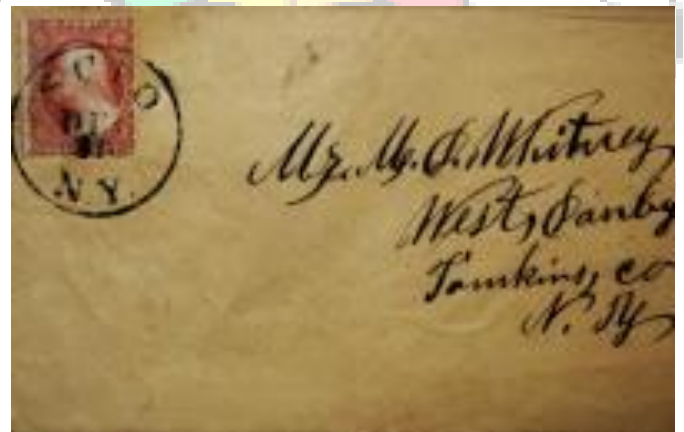 N.Y.
Mr. M. S. Whitney
West, Danby
Tomkins, co
N. Y